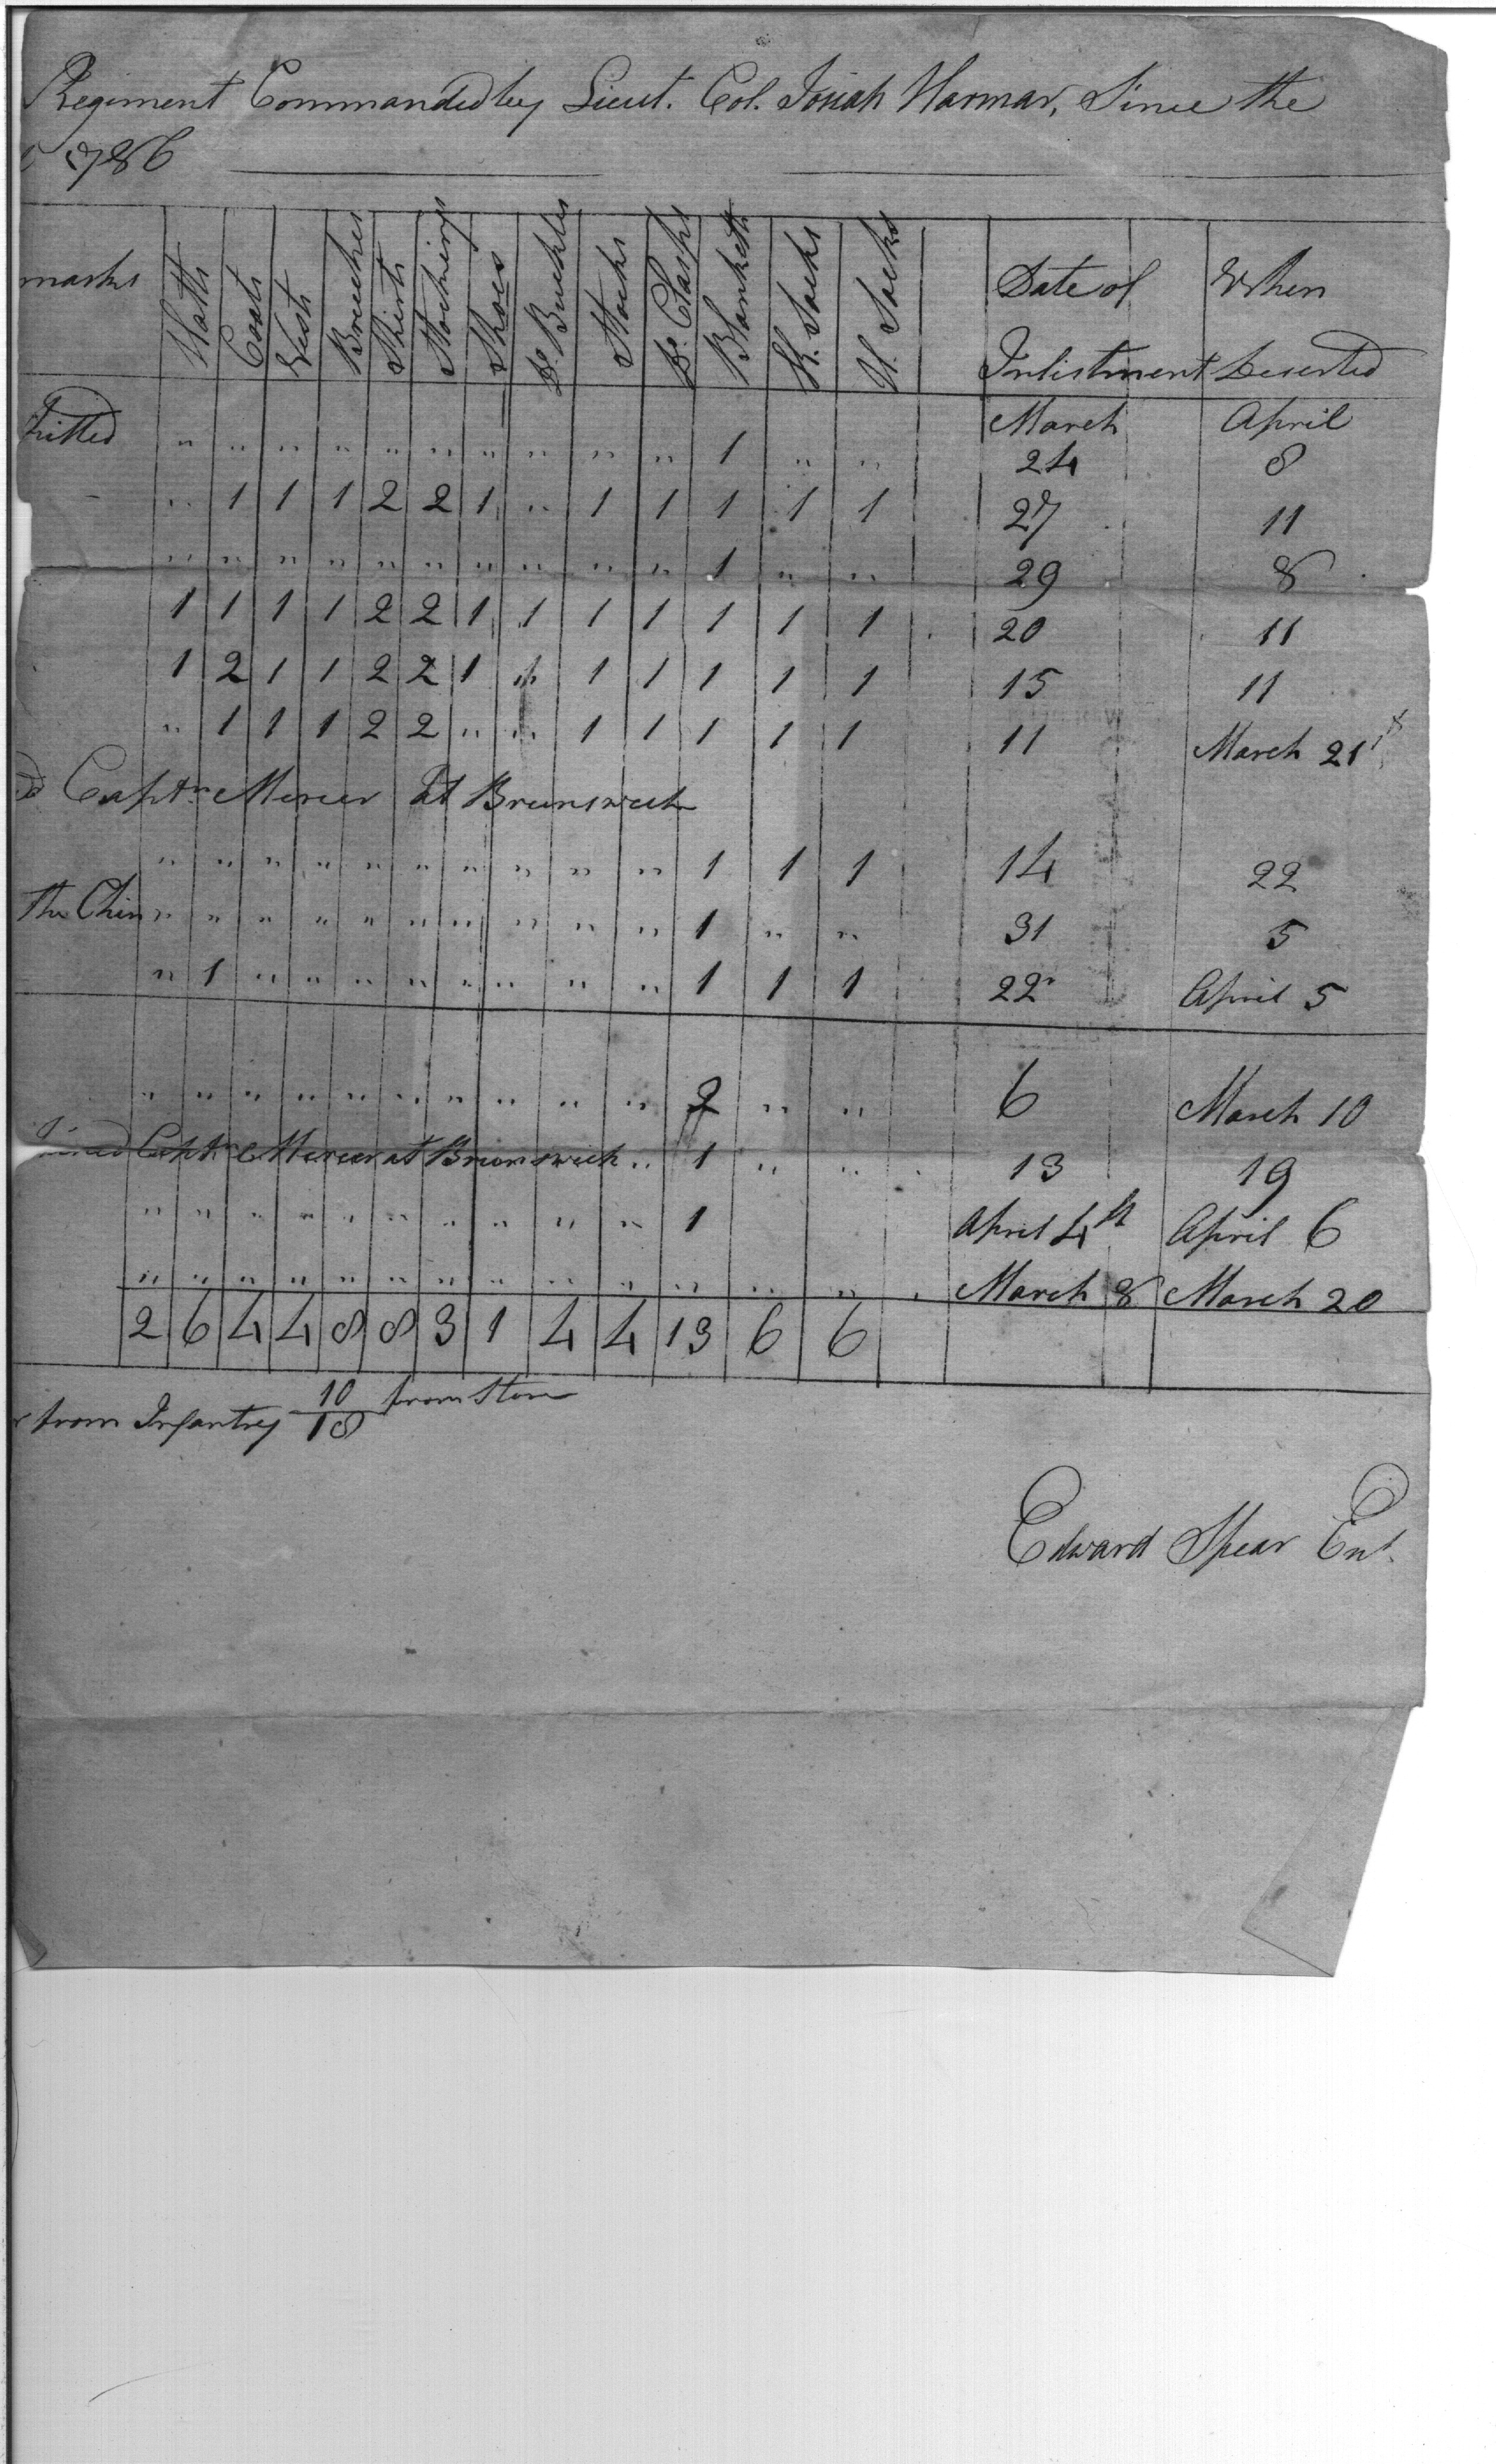 Regiment Commanded by Lieut. Col. Josiah Harmar, Since the
1786
marks Hatts Coats Vests Breeches Shirts Stockings Shoes Pr. Buckles Stocks Pr. Clasps Blanketts K. Sacks H. Sacks Date of Inlistment When Deserted
March April
fritted " " " " " " " " " " 1 " " 24 8
" 1 1 1 2 2 1 " 1 1 1 1 1 27 11
" " " " " " " " " " 1 " " 29 8
1 1 1 1 2 2 1 1 1 1 1 1 1 20 11
1 2 1 1 2 2 1 " 1 1 1 1 1 15 11
" 1 1 1 2 2 " " 1 1 1 1 1 11 March 21st
d Captn. Mercer at Brunswick
" " " " " " " " " " 1 1 1 14 22
the Chin " " " " " " " " " " 1 " " 31 5
" 1 " " " " " " " " 1 1 1 22 April 5
" " " " " " " " " " 2 " " 6 March 10
ined Captn. Mercer at Brunswick " 1 " " 13 19
" " " " " " " " " " 1 April 4th April 6
" " " " " " " " " " " " " March 8 March 20
2 6 4 4 8 8 3 1 4 4 13 6 6
r from Infantry 10/18 from Store
Edward Spear Ent.